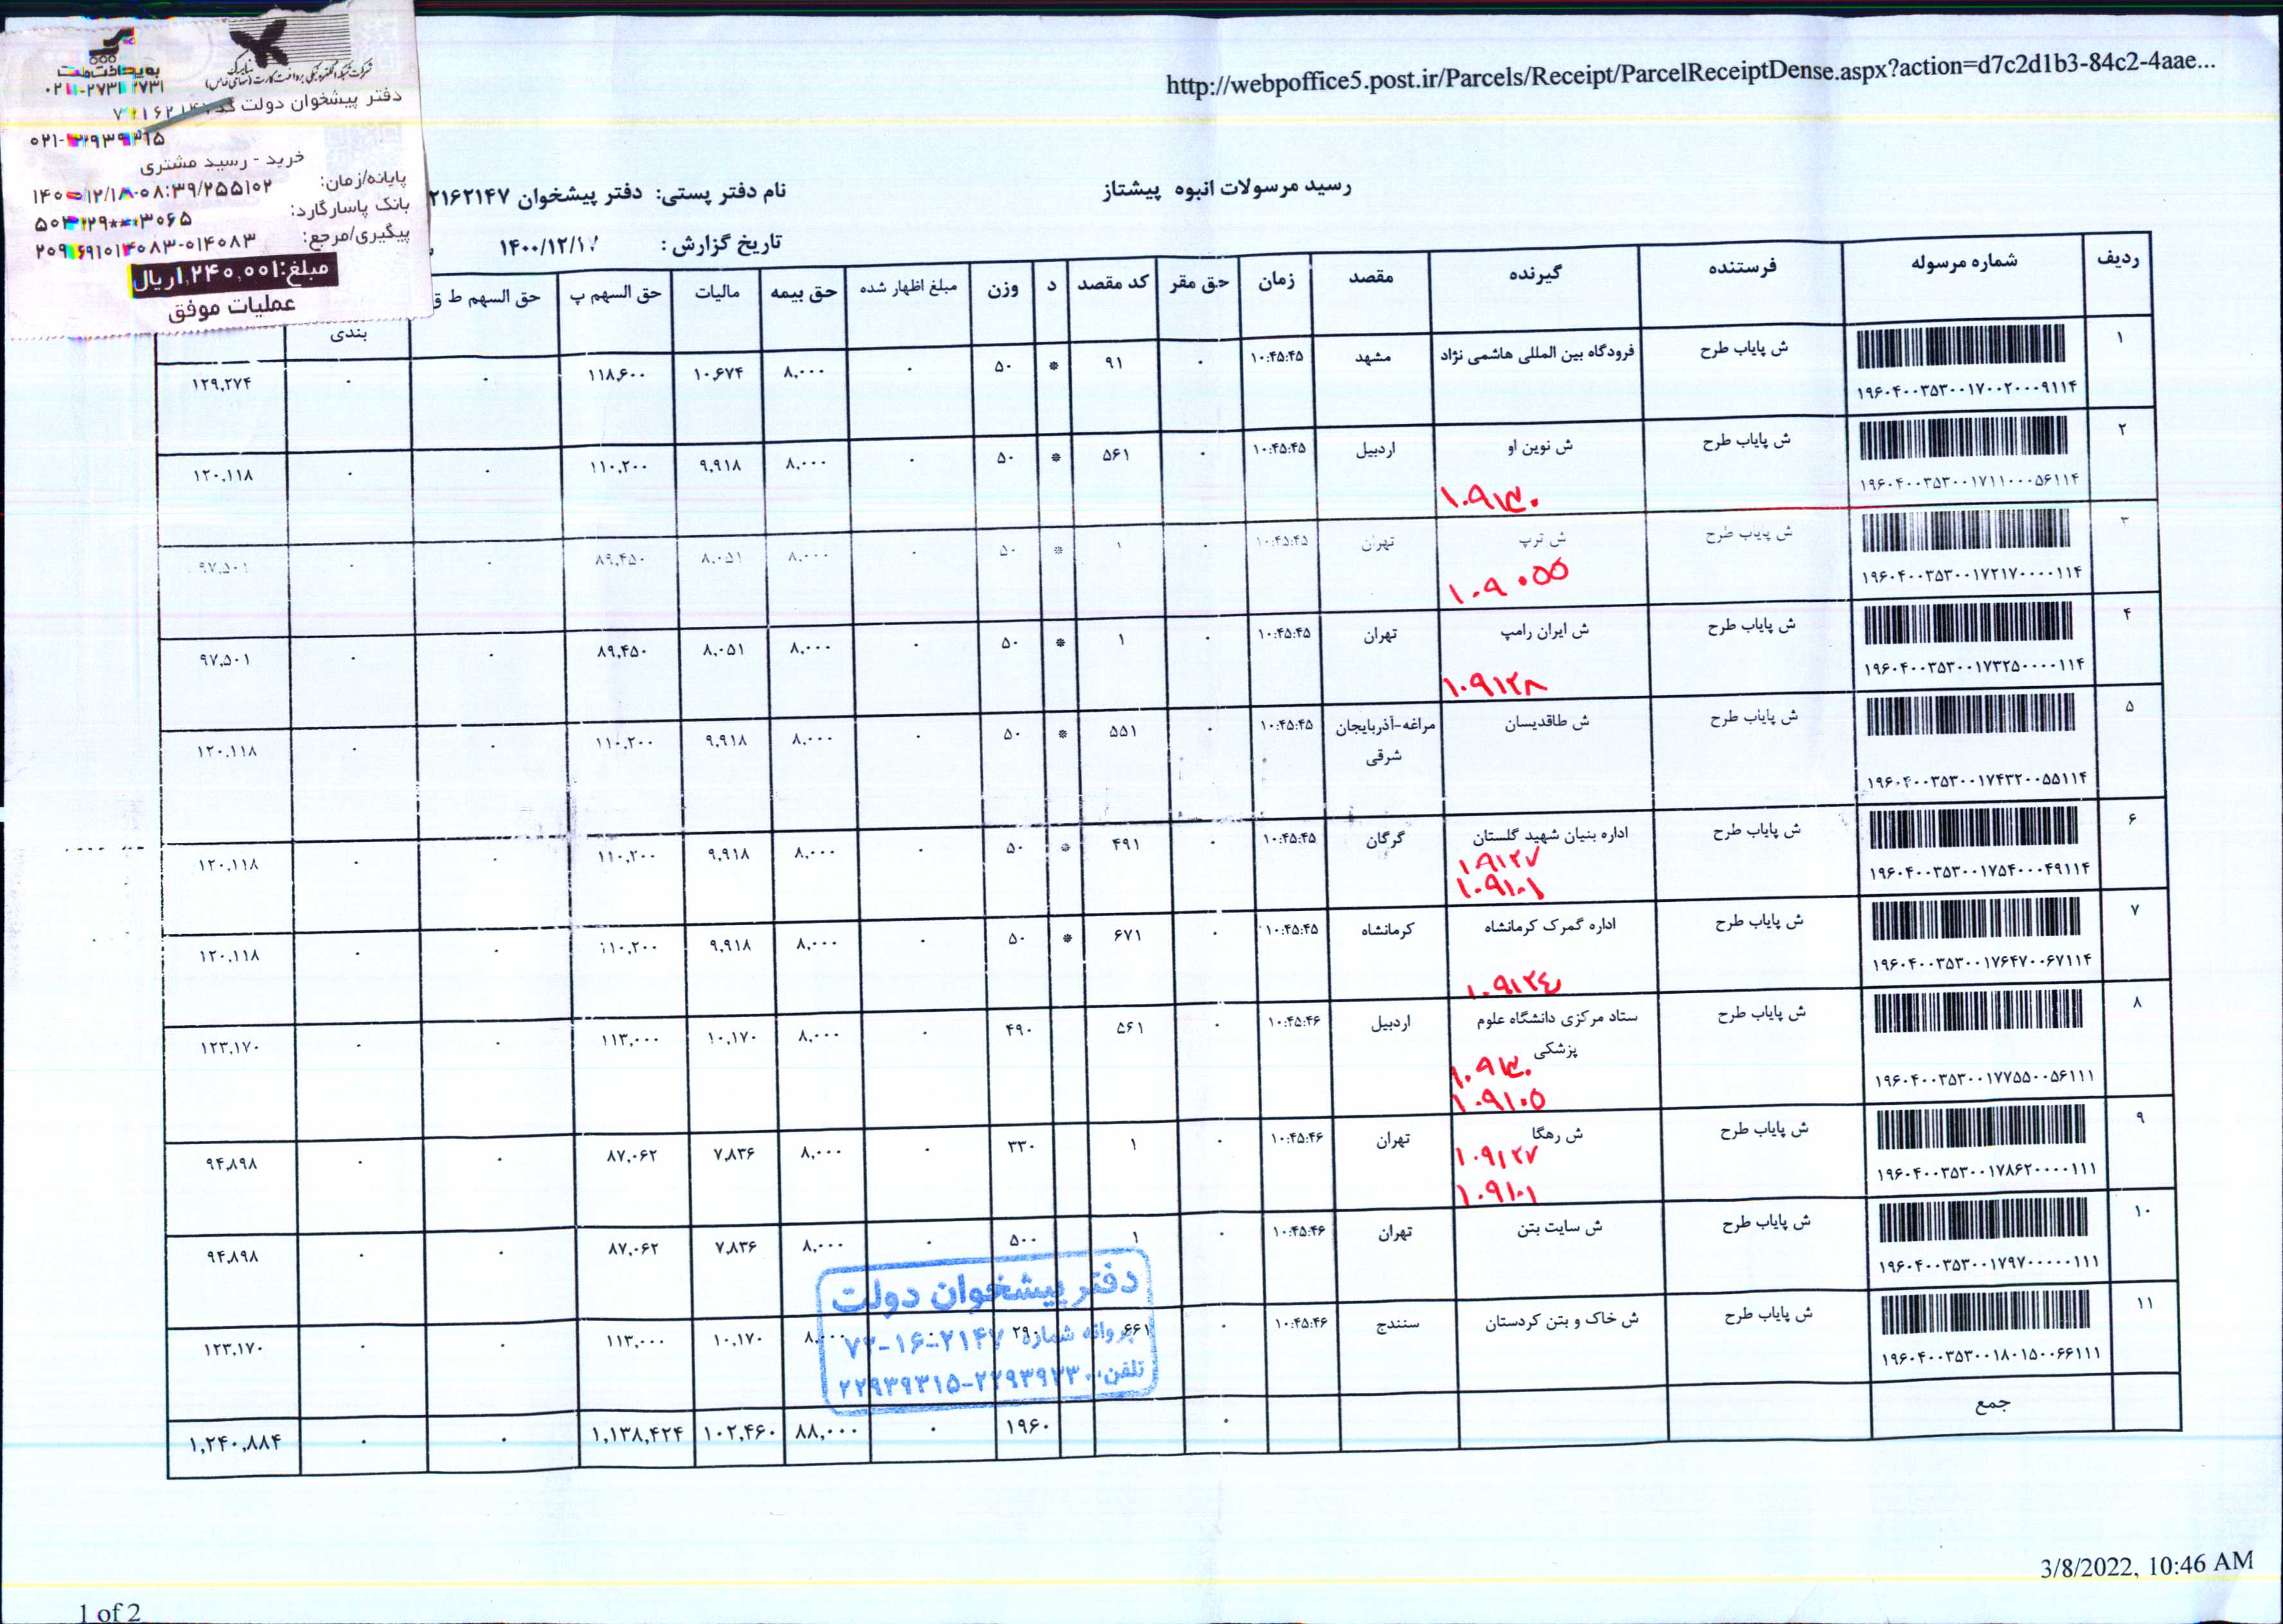 http://webpoffice5.post.ir/Parcels/Receipt/ParcelReceiptDense.aspx?action=d7c2d1b3-84c2-4aae...
به پرداخت ملت
۰۲۱-۲۷۳۱۲۷۳۱
دفتر پیشخوان دولت
۰۲۱-۲۲۹۳۹۳۱۵
خرید - رسید مشتری
پایانه/زمان:
بانک پاسارگارد:
پیگیری/مرجع:
مبلغ:۱,۲۴۰,۰۰۱ریال
عملیات موفق
رسید مرسولات انبوه پیشتاز
نام دفتر پستی: دفتر پیشخوان ۲۱۶۲۱۴۷
تاریخ گزارش : ۱۴۰۰/۱۲/۱۷
ردیف شماره مرسوله فرستنده گیرنده مقصد زمان حق مقر کد مقصد د وزن مبلغ اظهار شده حق بیمه مالیات حق السهم پ حق السهم ط ق بندی
۱ ش پایاب طرح فرودگاه بین المللی هاشمی نژاد مشهد ۱۰:۴۵:۴۵ ۰ ۹۱ * ۵۰ ۰ ۸,۰۰۰ ۱۰,۶۷۴ ۱۱۸,۶۰۰ ۰ ۱۲۹,۲۷۴
۱۹۶۰۴۰۰۳۵۳۰۰۱۷۰۰۲۰۰۰۹۱۱۴
۲ ش پایاب طرح ش نوین او اردبیل ۱۰:۴۵:۴۵ ۰ ۵۶۱ * ۵۰ ۰ ۸,۰۰۰ ۹,۹۱۸ ۱۱۰,۲۰۰ ۰ ۰ ۱۲۰,۱۱۸
۱۹۶۰۴۰۰۳۵۳۰۰۱۷۱۱۰۰۰۵۶۱۱۴
۱۰۹۱۳۰
۳ ش پایاب طرح ش ترپ تهران ۱۰:۴۵:۴۵ ۰ ۱ * ۵۰ ۰ ۸,۰۰۰ ۸,۰۵۱ ۸۹,۴۵۰ ۰ ۰ ۹۷,۵۰۱
۱۹۶۰۴۰۰۳۵۳۰۰۱۷۲۱۷۰۰۰۰۱۱۴
۱۰۹۰۵۵
۴ ش پایاب طرح ش ایران رامپ تهران ۱۰:۴۵:۴۵ ۰ ۱ * ۵۰ ۰ ۸,۰۰۰ ۸,۰۵۱ ۸۹,۴۵۰ ۰ ۰ ۹۷,۵۰۱
۱۹۶۰۴۰۰۳۵۳۰۰۱۷۳۲۵۰۰۰۰۱۱۴
۱۰۹۱۲۸
۵ ش پایاب طرح ش طاقدیسان مراغه-آذربایجان شرقی ۱۰:۴۵:۴۵ ۰ ۵۵۱ * ۵۰ ۰ ۸,۰۰۰ ۹,۹۱۸ ۱۱۰,۲۰۰ ۰ ۰ ۱۲۰,۱۱۸
۱۹۶۰۴۰۰۳۵۳۰۰۱۷۴۳۲۰۰۵۵۱۱۴
۶ ش پایاب طرح اداره بنیان شهید گلستان گرگان ۱۰:۴۵:۴۵ ۰ ۴۹۱ * ۵۰ ۰ ۸,۰۰۰ ۹,۹۱۸ ۱۱۰,۲۰۰ ۰ ۰ ۱۲۰,۱۱۸
۱۹۶۰۴۰۰۳۵۳۰۰۱۷۵۴۰۰۰۴۹۱۱۴
۱۰۹۱۲۷
۱۰۹۱۰۱
۷ ش پایاب طرح اداره گمرک کرمانشاه کرمانشاه ۱۰:۴۵:۴۵ ۰ ۶۷۱ * ۵۰ ۰ ۸,۰۰۰ ۹,۹۱۸ ۱۱۰,۲۰۰ ۰ ۰ ۱۲۰,۱۱۸
۱۹۶۰۴۰۰۳۵۳۰۰۱۷۶۴۷۰۰۶۷۱۱۴
۱۰۹۱۲۴
۸ ش پایاب طرح ستاد مرکزی دانشگاه علوم پزشکی اردبیل ۱۰:۴۵:۴۶ ۰ ۵۶۱ ۴۹۰ ۰ ۸,۰۰۰ ۱۰,۱۷۰ ۱۱۳,۰۰۰ ۰ ۰ ۱۲۳,۱۷۰
۱۹۶۰۴۰۰۳۵۳۰۰۱۷۷۵۵۰۰۵۶۱۱۱
۱۰۹۱۳۰
۱۰۹۱۰۵
۹ ش پایاب طرح ش رهگا تهران ۱۰:۴۵:۴۶ ۰ ۱ ۳۳۰ ۰ ۸,۰۰۰ ۷,۸۳۶ ۸۷,۰۶۲ ۰ ۰ ۹۴,۸۹۸
۱۹۶۰۴۰۰۳۵۳۰۰۱۷۸۶۲۰۰۰۰۱۱۱
۱۰۹۱۲۷
۱۰۹۱۰۱
۱۰ ش پایاب طرح ش سایت بتن تهران ۱۰:۴۵:۴۶ ۰ ۱ ۵۰۰ ۰ ۸,۰۰۰ ۷,۸۳۶ ۸۷,۰۶۲ ۰ ۰ ۹۴,۸۹۸
۱۹۶۰۴۰۰۳۵۳۰۰۱۷۹۷۰۰۰۰۰۱۱۱
۱۱ ش پایاب طرح ش خاک و بتن کردستان سنندج ۱۰:۴۵:۴۶ ۰ ۶۶۱ ۲۹۰ ۰ ۸,۰۰۰ ۱۰,۱۷۰ ۱۱۳,۰۰۰ ۰ ۰ ۱۲۳,۱۷۰
۱۹۶۰۴۰۰۳۵۳۰۰۱۸۰۱۵۰۰۶۶۱۱۱
جمع ۰ ۱۹۶۰ ۰ ۸۸,۰۰۰ ۱۰۲,۴۶۰ ۱,۱۳۸,۴۲۴ ۰ ۰ ۱,۲۴۰,۸۸۴
دفتر پیشخوان دولت
پروانه شماره ۷۲-۱۶-۲۱۴۷
تلفن: ۲۲۹۳۹۳۱۵-۲۲۹۳۹۲۳۰
3/8/2022, 10:46 AM
1 of 2